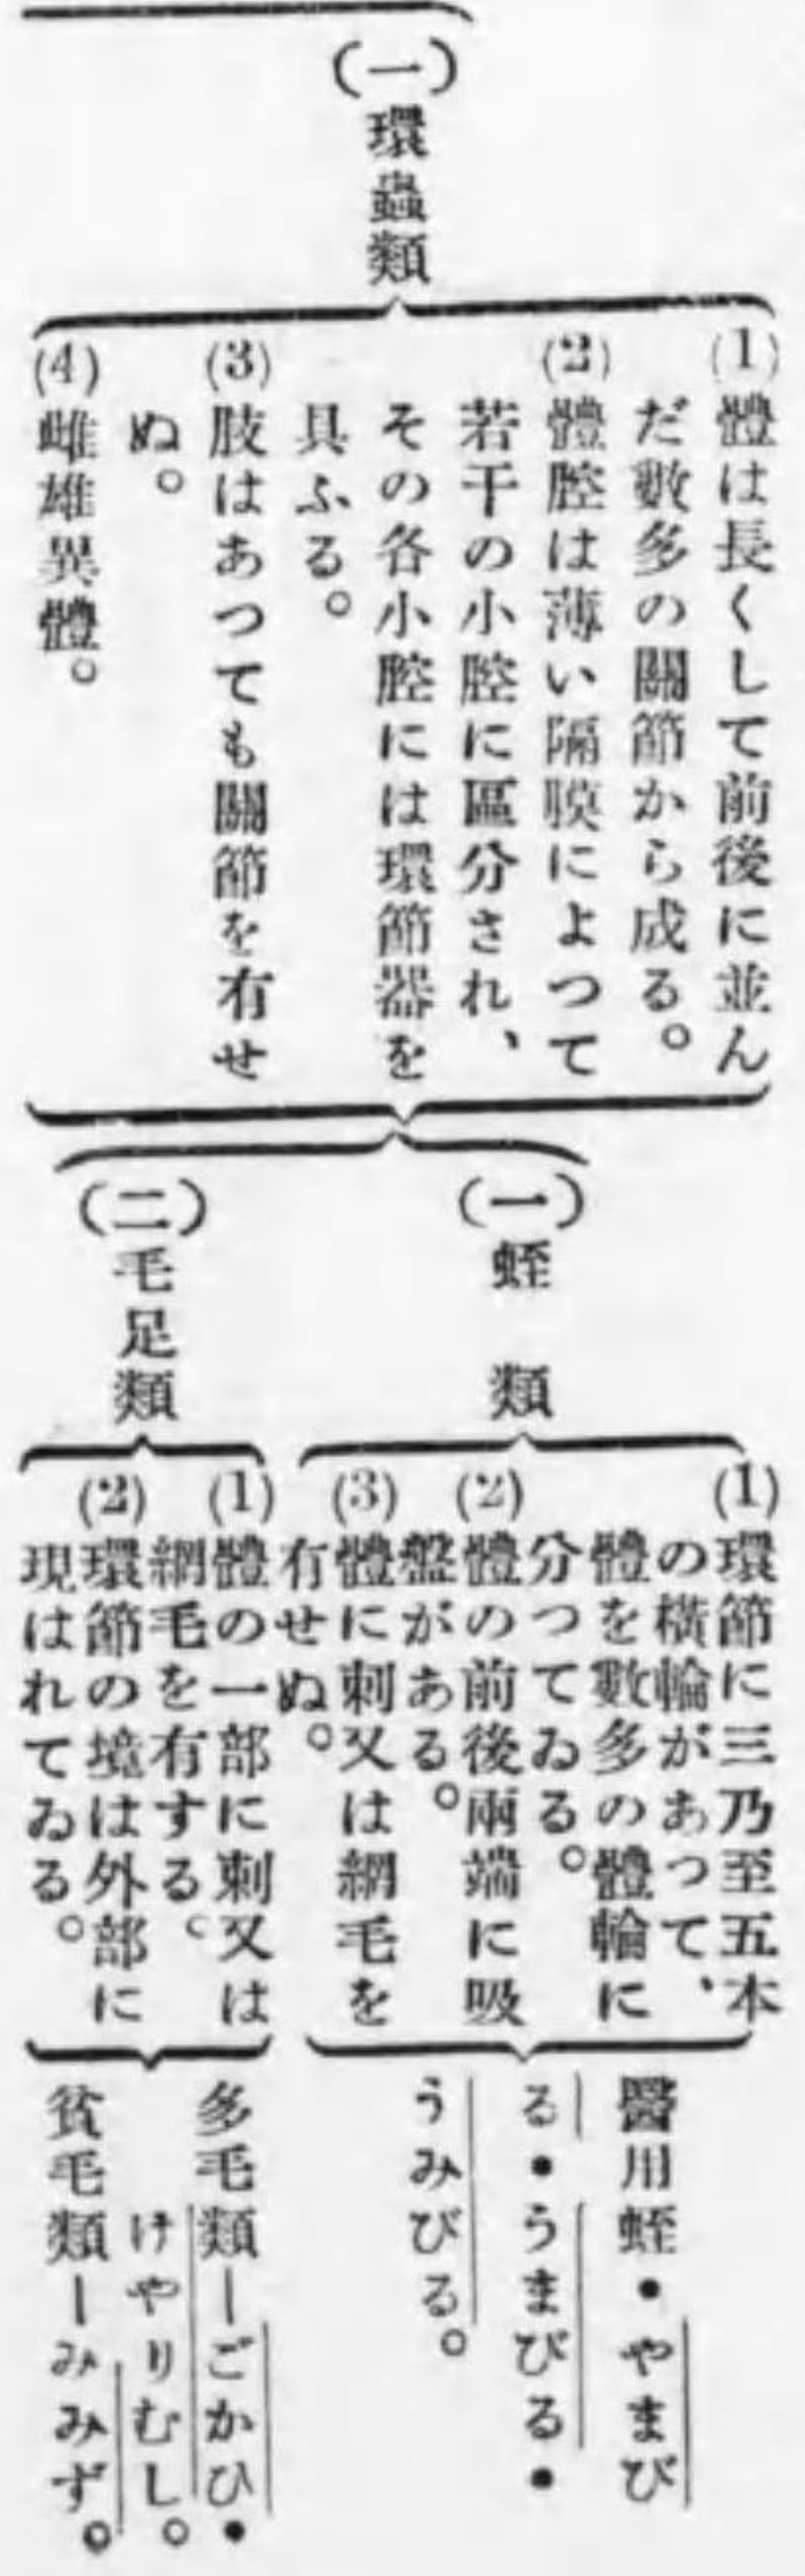 (一)環蟲類
(1)體は長くして前後に並ん
だ數多の關節から成る。
(2)體腔は薄い隔膜によつて
若干の小腔に區分され、
その各小腔には環節器を
具ふる。
(3)肢はあつても關節を有せ
ぬ。
(4)雌雄異體。
(一)蛭類
(1)環節に三乃至五本
の橫輪があつて、
體を數多の體輪に
分つてゐる。
(2)體の前後兩端に吸
盤がある。
(3)體に刺又は網毛を
有せぬ。
醫用蛭・やまび
る・うまびる・
うみびる。
(二)毛足類
(1)體の一部に刺又は
網毛を有する。
(2)環節の境は外部に
現はれてゐる。
多毛類―ごかひ・
けやりむし。
貧毛類―みみず。